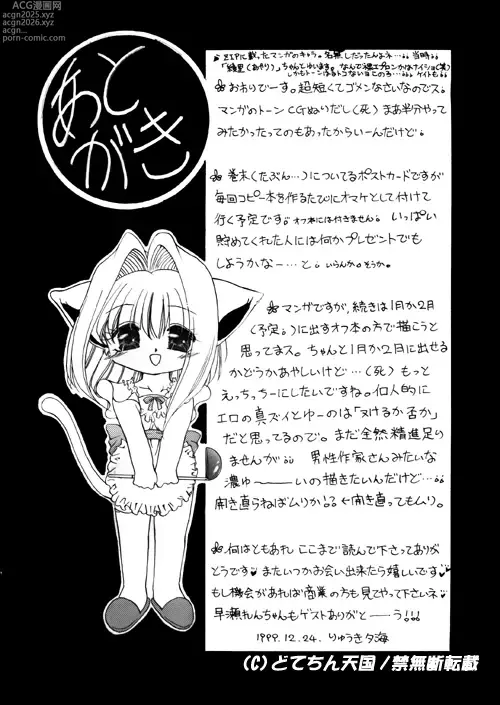 ACG漫画网
acgn2025.com
acgn2026.com
porn-comic.com
あとがき
ZIPに載ったマンガのキャラ。名無しだったんよネ…当時
「綾里(あやり)」ちゃんとゆいます。なんで裸エプロンかはナイショ(笑)
おわりでーす。超短くてゴメンなさいなのでス。
マンガのトーンCGぬいだし(死) まあ前半やって
みたかったってのもあったからいーんだけど。
巻末(たぶん…)についてるポストカードですが
毎回コピー本を作るたびにオマケとして付けて
行く予定です。オフ本には付きません。いっぱい
貯めてくれた人には何かプレゼントでも
しようかなー…と。いらんか。そうか。
マンガですが、続きは1月か2月
(予定。)に出すオフ本の方で描こうと
思ってまス。ちゃんと1月か2月に出せる
かどうかあやしいけど…(死) もっと
えっちっちーにしたいですね。個人的に
エロの真ズイとゆーのは「ヌけるか否か」
だと思ってるので。まだ全然精進足り
ませんが。 男性作家さんみたいな
濃ゆ〜〜いの描きたいんだけど…
開き直らねばムリか!! ←開き直ってもムリ。
何はともあれ ここまで読んで下さってありが
とうです♥ またいつかお会い出来たら嬉しいです♥
もし機会があれば商業の方も見てやって下さいネ
早瀬れんちゃんもゲストありがと〜う!!!
1999.12.24. りゅうき夕海
(C) どてちん天国/禁無断転載